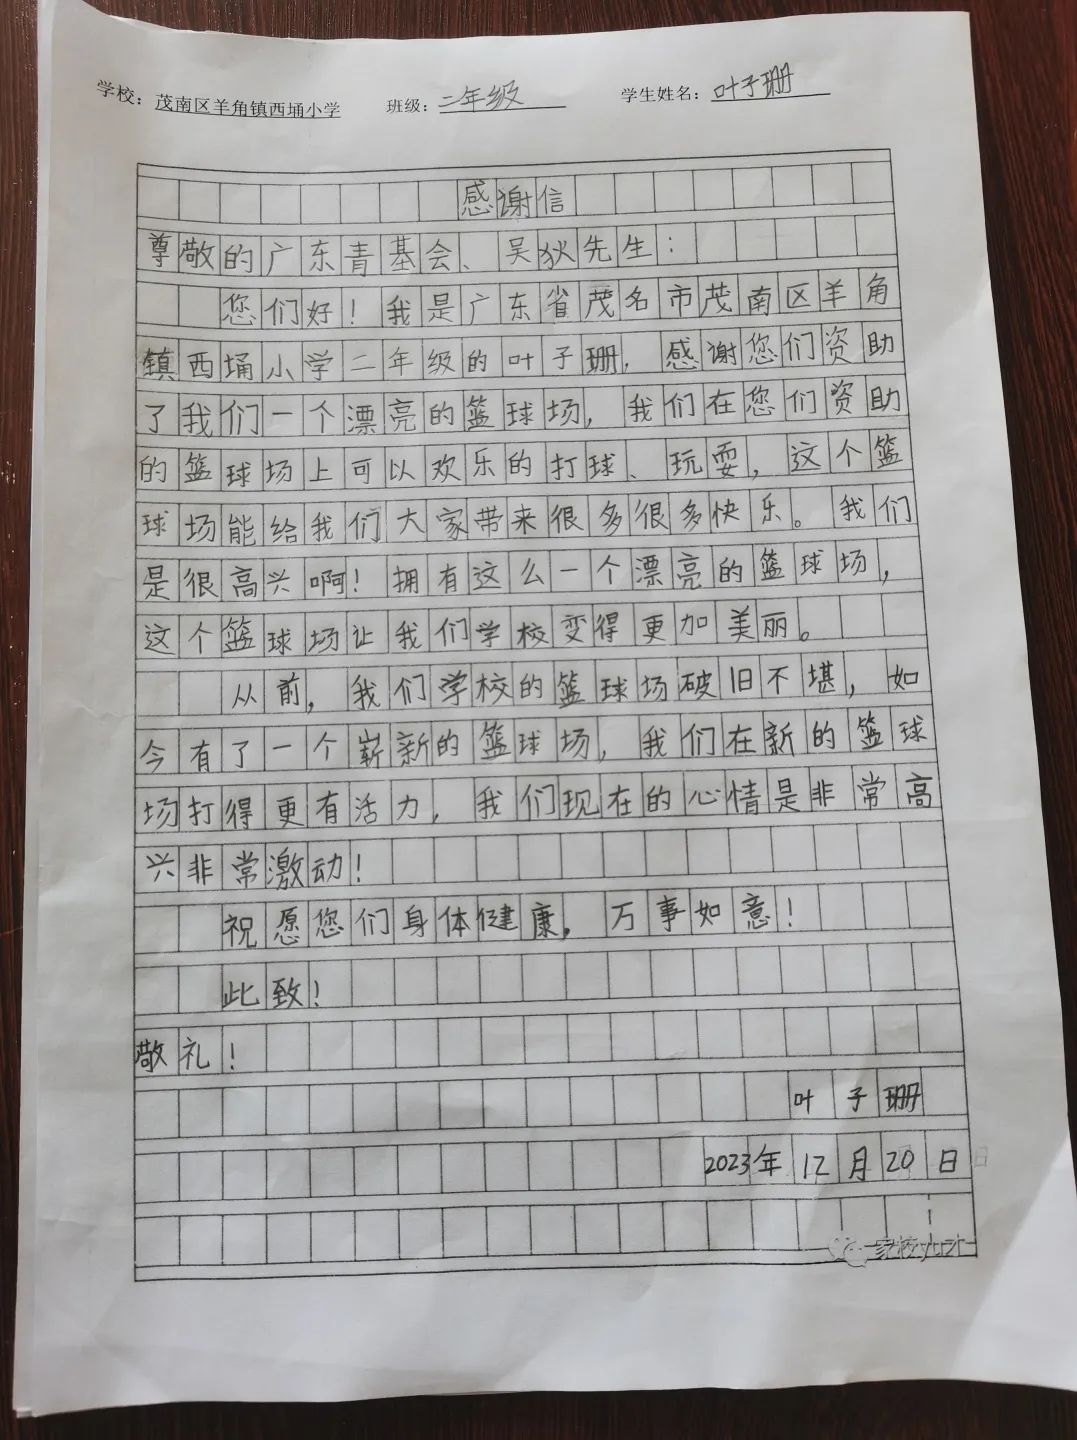 学校：茂南区羊角镇西埇小学 班级：二年级 学生姓名：叶子珊
感谢信
尊敬的广东青基会、吴狄先生：
您们好！我是广东省茂名市茂南区羊角
镇西埇小学二年级的叶子珊，感谢您们资助
了我们一个漂亮的篮球场，我们在您们资助
的篮球场上可以欢乐的打球、玩耍，这个篮
球场能给我们大家带来很多很多快乐。我们
是很高兴啊！拥有这么一个漂亮的篮球场，
这个篮球场让我们学校变得更加美丽。
从前，我们学校的篮球场破旧不堪，如
今有了一个崭新的篮球场，我们在新的篮球
场打得更有活力，我们现在的心情是非常高
兴非常激动！
祝愿您们身体健康，万事如意！
此致！
敬礼！
叶子珊
2023年12月20日